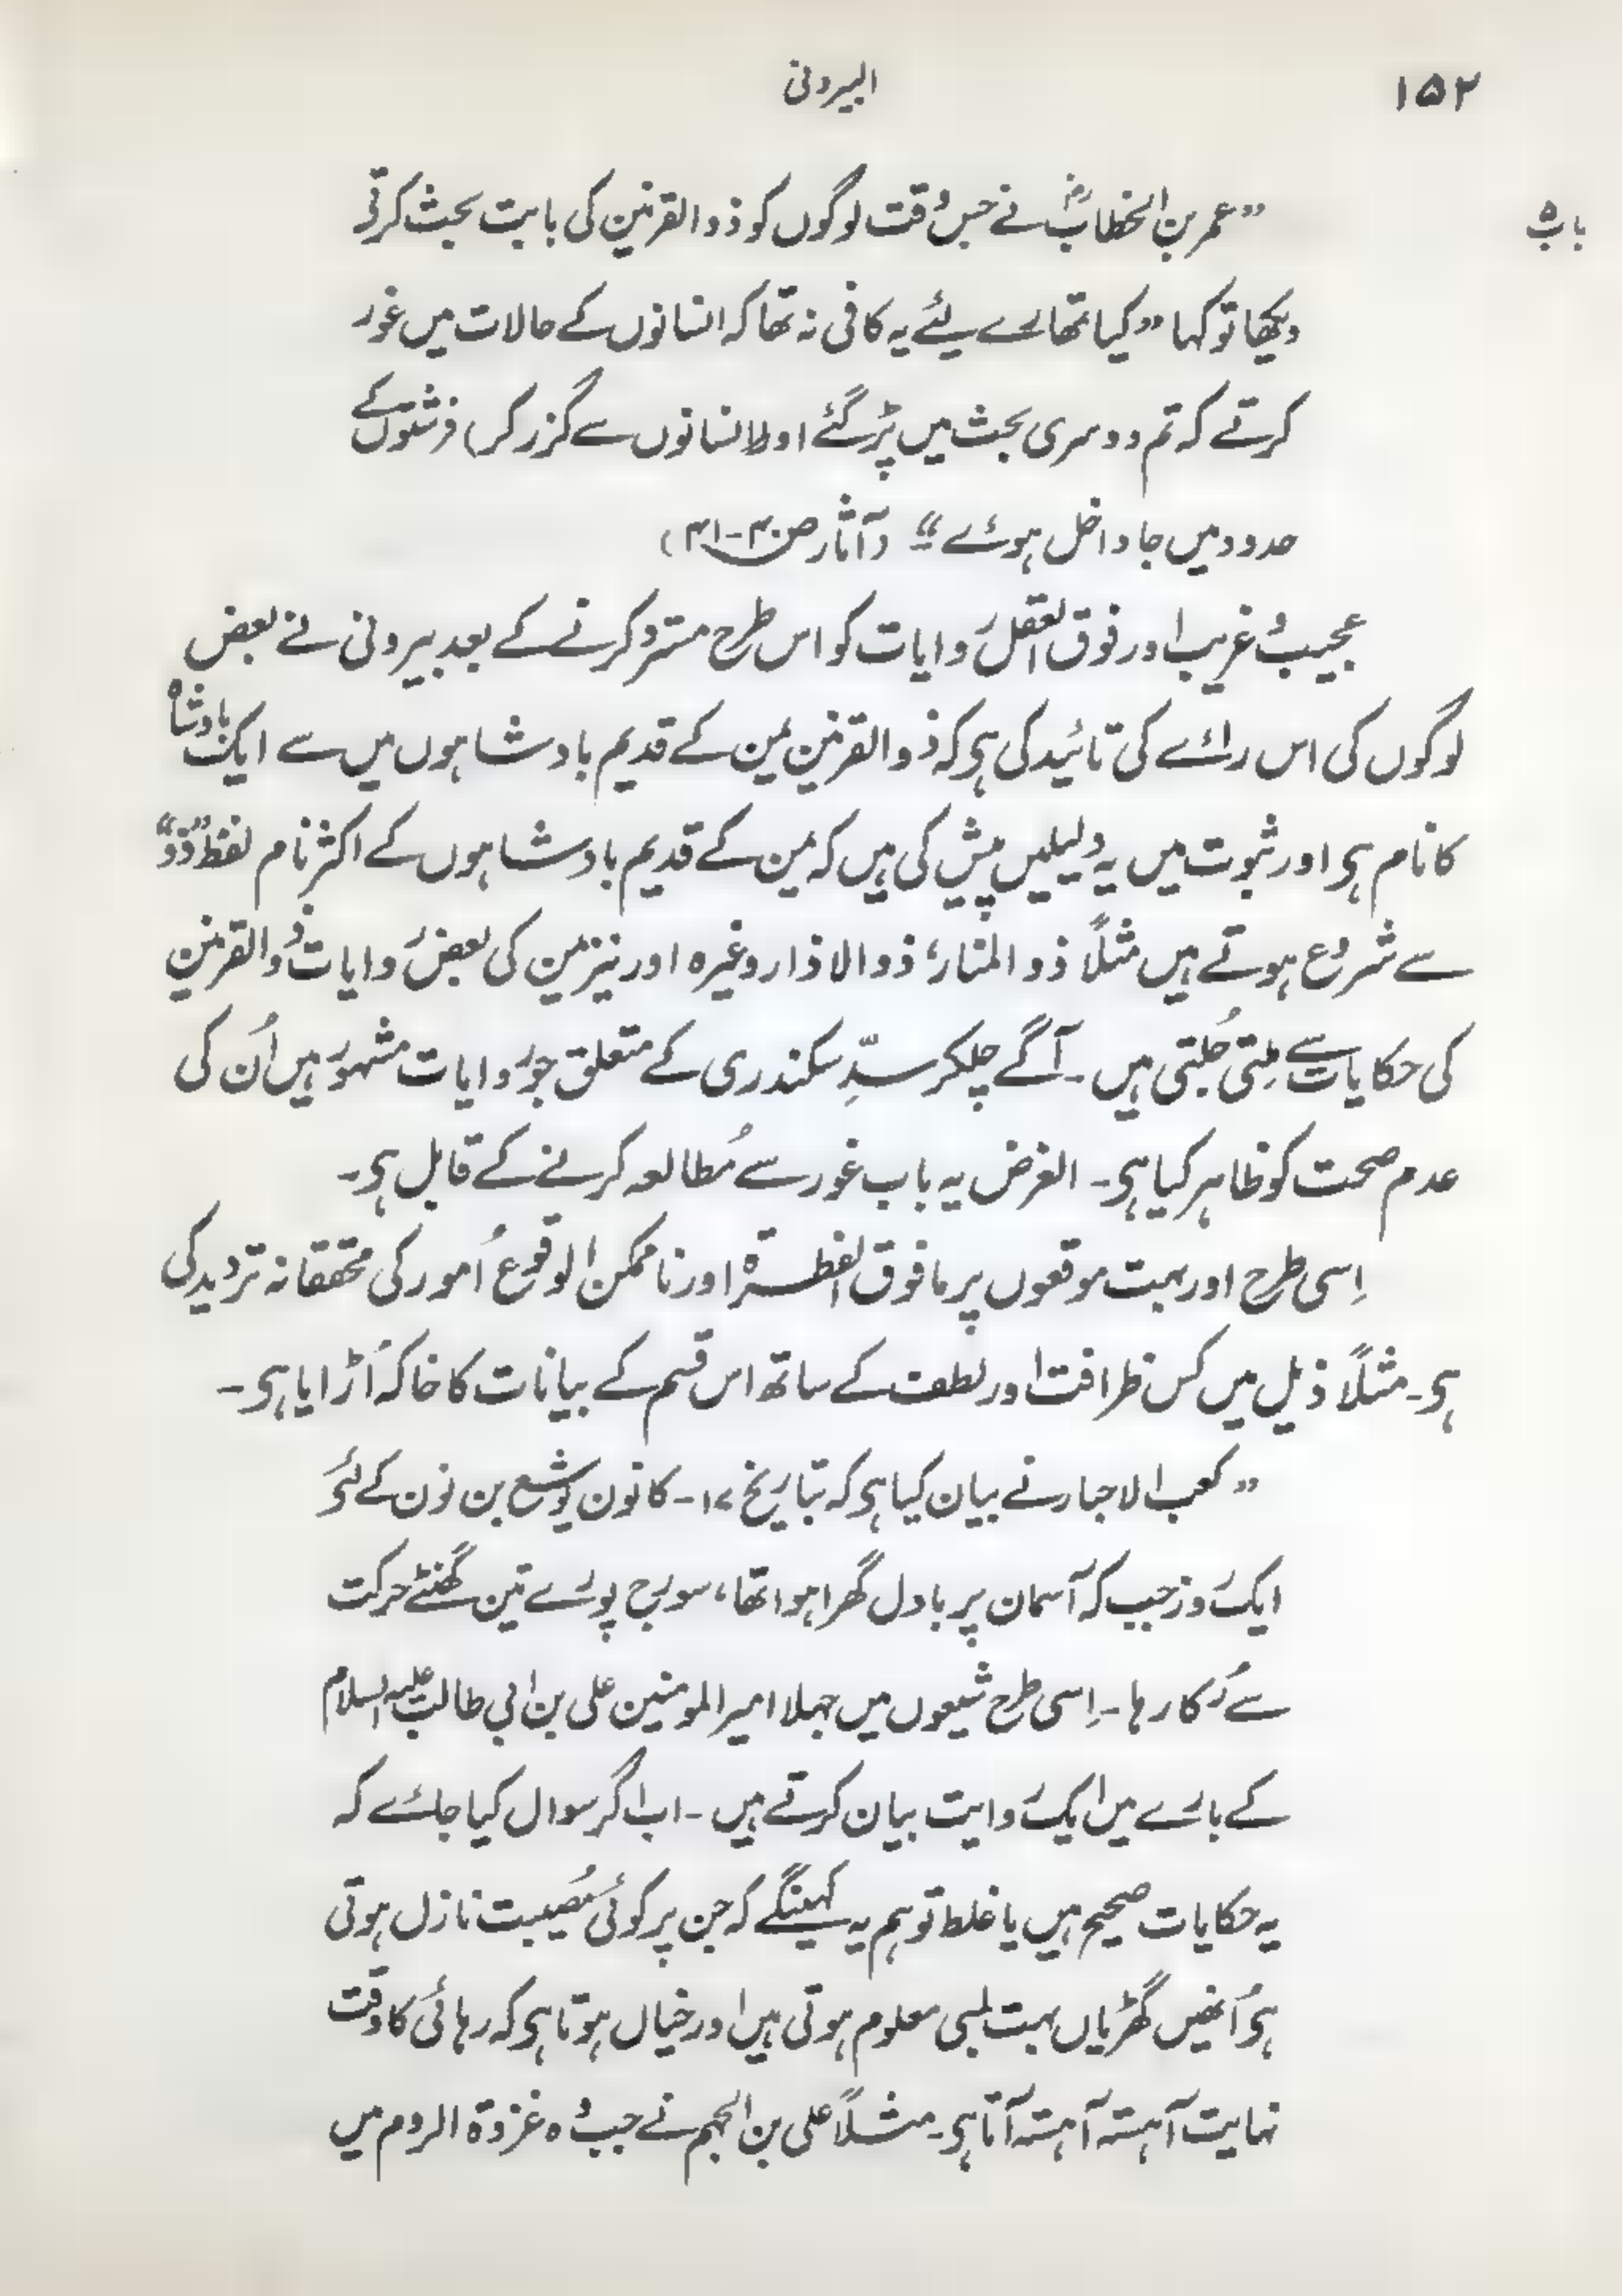 ۱۵۲
البیرونی
باب۵
”عمر بن الخطابؓ نے جس وقت لوگوں کو ذوالقرنین کی بابت بحث کرتے
دیکھا تو کہا ”کیا تمھارے لئے یہ کافی نہ تھا کہ انسانوں کے حالات میں غور
کرتے کہ تم دوسری بحث میں پڑ گئے اور (انسانوں سے گزر کر) فرشتوں کے
حدود میں جا داخل ہوئے“ (آثار ص ۴۰-۴۱)
عجیب و غریب اور فوق العقل روایات کو اس طرح مسترد کرنے کے بعد بیرونی نے بعض
لوگوں کی اس رائے کی تائید کی ہی کہ ذوالقرنین یمن کے قدیم بادشاہوں میں سے ایک بادشاہ
کا نام ہی اور ثبوت میں یہ دلیلیں پیش کی ہیں کہ یمن کے قدیم بادشاہوں کے اکثر نام لفظ ”ذو“
سے شروع ہوتے ہیں مثلاً ذوالمنار، ذوالاذار وغیرہ اور نیز یمن کی بعض روایات ذوالقرنین
کی حکایات سے ملتی جُلتی ہیں ۔ آگے چلکر سدِّ سکندری کے متعلق جو روایات مشہور ہیں اُن کی
عدم صحت کو ظاہر کیا ہی ۔ الغرض یہ باب غور سے مُطالعہ کرنے کے قابل ہی ۔
اِسی طرح اور بہت موقعوں پر مافوق الفطرۃ اور ناممکن الوقوع اُمور کی محققانہ تردید کی
ہی ۔ مثلاً ذیل میں کس ظرافت اور لطف کے ساتھ اس قسم کے بیانات کا خاکہ اُڑایا ہی ۔
”کعب الاحبار نے بیان کیا ہی کہ بتاریخ ۱۷ ۔ کانون یوشع بن نون کے لئے
ایک روز جب کہ آسمان پر بادل گھرا ہوا تھا، سورج پورے تین گھنٹے حرکت
سے رُکا رہا ۔ اِسی طرح شیعوں میں جہلا امیرالمومنین علی بن ابی طالب علیہ السلام
کے بارے میں ایک روایت بیان کرتے ہیں ۔ اب اگر سوال کیا جائے کہ
یہ حکایات صحیح ہیں یا غلط تو ہم یہ کہینگے کہ جن پر کوئی مُصیبت نازل ہوتی
ہی اُنھیں گھڑیاں بہت لمبی معلوم ہوتی ہیں اور خیال ہوتا ہی کہ رہائی کا وقت
نہایت آہستہ آہستہ آتا ہی ۔ مثلاً علی بن الجہم نے جب وہ غزوۃ الروم میں